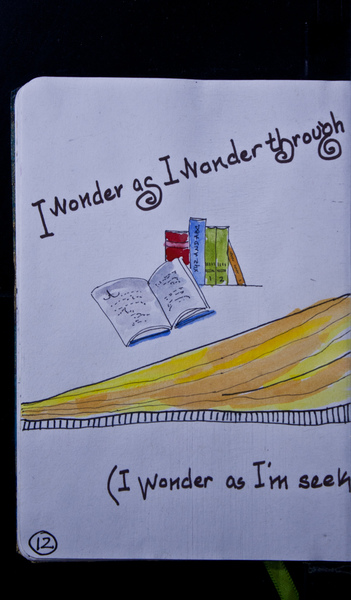 I wonder as I wonder through
1 2
(I wonder as I'm seek
12